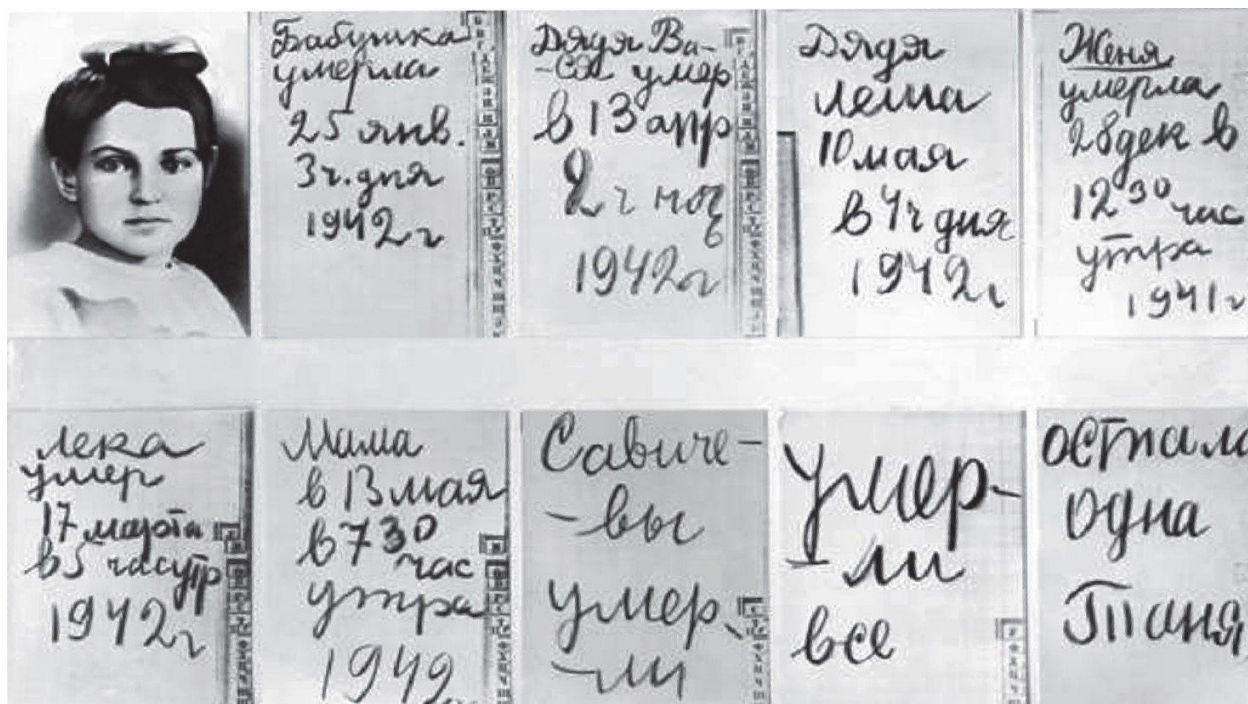 Бабушка
умерла
25 янв.
3ч. дня
1942 г
Дядя Ва-
-ся умер
в 13 апр
2 ч ночь
1942г
Дядя
Леша
10 мая
в 4ч дня
1942г
Женя
умерла
28 дек в
12 30 час
утра
1941 г
Лека
умер
17 марта
в 5 час утр
1942г
Мама
в 13 мая
в 7 30
час
утра
1942
Савиче-
-вы
умер
-ли
Умер-
-ли
все
остала
одна
Таня